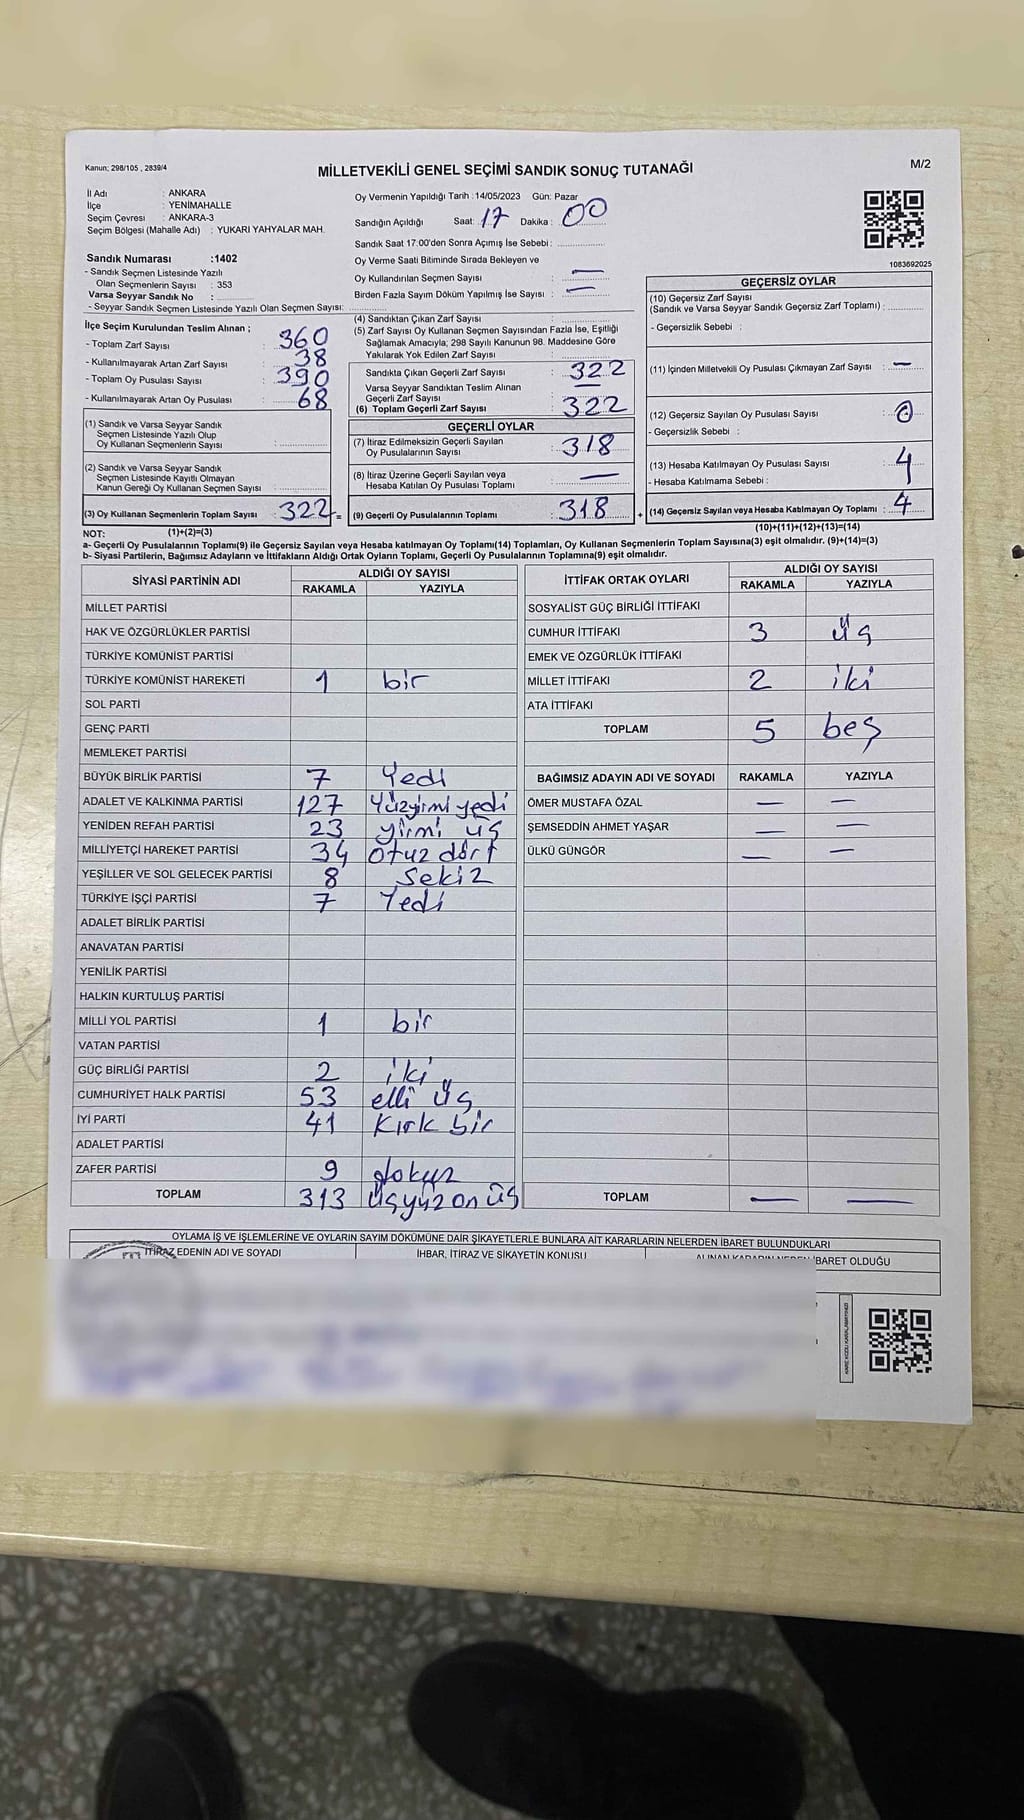 Kanun: 298/105 , 2839/4
MİLLETVEKİLİ GENEL SEÇİMİ SANDIK SONUÇ TUTANAĞI
M/2
İl Adı : ANKARA
İlçe : YENİMAHALLE
Seçim Çevresi : ANKARA-3
Seçim Bölgesi (Mahalle Adı) : YUKARI YAHYALAR MAH.
Sandık Numarası :1402
- Sandık Seçmen Listesinde Yazılı
Olan Seçmenlerin Sayısı : 353
Varsa Seyyar Sandık No :
- Seyyar Sandık Seçmen Listesinde Yazılı Olan Seçmen Sayısı:
Oy Vermenin Yapıldığı Tarih :14/05/2023 Gün: Pazar
Sandığın Açıldığı Saat: 17 Dakika : 00
Sandık Saat 17:00'den Sonra Açımış İse Sebebi :
Oy Verme Saati Bitiminde Sırada Bekleyen ve
Oy Kullandırılan Seçmen Sayısı : —
Birden Fazla Sayım Döküm Yapılmış İse Sayısı : —
1083692025
İlçe Seçim Kurulundan Teslim Alınan ;
- Toplam Zarf Sayısı : 360
- Kullanılmayarak Artan Zarf Sayısı : 38
- Toplam Oy Pusulası Sayısı : 390
- Kullanılmayarak Artan Oy Pusulası : 68
(1) Sandık ve Varsa Seyyar Sandık
Seçmen Listesinde Yazılı Olup
Oy Kullanan Seçmenlerin Sayısı :
(2) Sandık ve Varsa Seyyar Sandık
Seçmen Listesinde Kayıtlı Olmayan
Kanun Gereği Oy Kullanan Seçmen Sayısı :
(3) Oy Kullanan Seçmenlerin Toplam Sayısı : 322 =
(1)+(2)=(3)
(4) Sandıktan Çıkan Zarf Sayısı :
(5) Zarf Sayısı Oy Kullanan Seçmen Sayısından Fazla İse, Eşitliği
Sağlamak Amacıyla; 298 Sayılı Kanunun 98. Maddesine Göre
Yakılarak Yok Edilen Zarf Sayısı :
Sandıkta Çıkan Geçerli Zarf Sayısı : 322
Varsa Seyyar Sandıktan Teslim Alınan
Geçerli Zarf Sayısı : —
(6) Toplam Geçerli Zarf Sayısı : 322
GEÇERLİ OYLAR
(7) İtiraz Edilmeksizin Geçerli Sayılan
Oy Pusulalarının Sayısı : 318
(8) İtiraz Üzerine Geçerli Sayılan veya
Hesaba Katılan Oy Pusulası Toplamı : —
(9) Geçerli Oy Pusulalarının Toplamı : 318 +
GEÇERSİZ OYLAR
(10) Geçersiz Zarf Sayısı
(Sandık ve Varsa Seyyar Sandık Geçersiz Zarf Toplamı) :
- Geçersizlik Sebebi :
(11) İçinden Milletvekili Oy Pusulası Çıkmayan Zarf Sayısı : —
(12) Geçersiz Sayılan Oy Pusulası Sayısı : 0
- Geçersizlik Sebebi :
(13) Hesaba Katılmayan Oy Pusulası Sayısı : 4
- Hesaba Katılmama Sebebi :
(14) Geçersiz Sayılan veya Hesaba Katılmayan Oy Toplamı : 4
(10)+(11)+(12)+(13)=(14)
NOT:
a- Geçerli Oy Pusulalarının Toplamı(9) ile Geçersiz Sayılan veya Hesaba katılmayan Oy Toplamı(14) Toplamları, Oy Kullanan Seçmenlerin Toplam Sayısına(3) eşit olmalıdır. (9)+(14)=(3)
b- Siyasi Partilerin, Bağımsız Adayların ve İttifakların Aldığı Ortak Oyların Toplamı, Geçerli Oy Pusulalarının Toplamına(9) eşit olmalıdır.
SİYASİ PARTİNİN ADI
ALDIĞI OY SAYISI
RAKAMLA YAZIYLA
MİLLET PARTİSİ
HAK VE ÖZGÜRLÜKLER PARTİSİ
TÜRKİYE KOMÜNİST PARTİSİ
TÜRKİYE KOMÜNİST HAREKETİ 1 bir
SOL PARTİ
GENÇ PARTİ
MEMLEKET PARTİSİ
BÜYÜK BİRLİK PARTİSİ 7 Yedi
ADALET VE KALKINMA PARTİSİ 127 Yüzyirmi yedi
YENİDEN REFAH PARTİSİ 23 yirmi üç
MİLLİYETÇİ HAREKET PARTİSİ 34 Otuz dört
YEŞİLLER VE SOL GELECEK PARTİSİ 8 Sekiz
TÜRKİYE İŞÇİ PARTİSİ 7 Yedi
ADALET BİRLİK PARTİSİ
ANAVATAN PARTİSİ
YENİLİK PARTİSİ
HALKIN KURTULUŞ PARTİSİ
MİLLİ YOL PARTİSİ 1 bir
VATAN PARTİSİ
GÜÇ BİRLİĞİ PARTİSİ 2 iki
CUMHURİYET HALK PARTİSİ 53 elli üç
İYİ PARTİ 41 Kırk bir
ADALET PARTİSİ
ZAFER PARTİSİ 9 dokuz
TOPLAM 313 üçyüz on üç
İTTİFAK ORTAK OYLARI
ALDIĞI OY SAYISI
RAKAMLA YAZIYLA
SOSYALİST GÜÇ BİRLİĞİ İTTİFAKI
CUMHUR İTTİFAKI 3 üç
EMEK VE ÖZGÜRLÜK İTTİFAKI
MİLLET İTTİFAKI 2 iki
ATA İTTİFAKI
TOPLAM 5 beş
BAĞIMSIZ ADAYIN ADI VE SOYADI RAKAMLA YAZIYLA
ÖMER MUSTAFA ÖZAL — —
ŞEMSEDDİN AHMET YAŞAR — —
ÜLKÜ GÜNGÖR — —
TOPLAM — —
OYLAMA İŞ VE İŞLEMLERİNE VE OYLARIN SAYIM DÖKÜMÜNE DAİR ŞİKAYETLERLE BUNLARA AİT KARARLARIN NELERDEN İBARET BULUNDUKLARI
İTİRAZ EDENİN ADI VE SOYADI
İHBAR, İTİRAZ VE ŞİKAYETİN KONUSU
ALINAN KARARIN NEDEN İBARET OLDUĞU